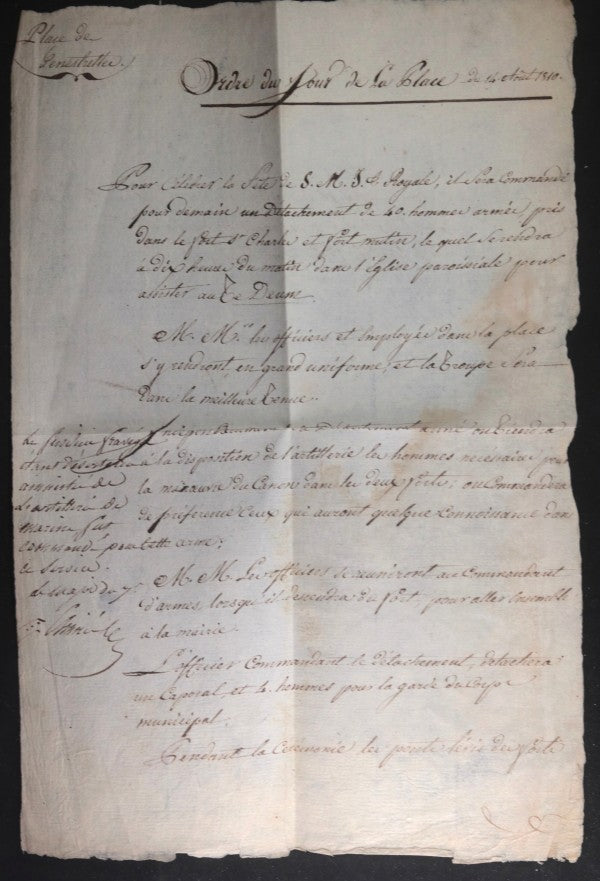 Place de
Ordre du Jour de la Place du 14 Août 1810.
Pour Célébrer la fête de S. M. J. & Royale, il Sera Commandé
pour demain un détachement de 40. hommes armée, pris
dans le fort St Charle et fort mutin, le quel Serendra
à dix heures du matin dans l'Eglise paroissiale pour
assister au Te Deum
M. Mrs. les officiers et Employée dans la place
s'y rendront en grand uniforme, et la Troupe Sera
dans la meilleure Tenue.
Independamment armé on tiendra
à la disposition de l'artillerie les hommes nécessaire pour
la manœuvre du Canon dans les deux forts; on Commandera
de préférence Ceux qui auront quelque Connoissance dans
cette arme;
M. M. Les officiers se reuniront au Commandant
d'armes, lorsqu'il descendra du fort, pour aller Ensemble
à la mairie.
L'officier Commandant le détachement, detachera
un Caporal et 4. hommes pour la garde du Corps
municipal.
Pendant la Cérémonie les ponts levis des forts
le fusilier
de
l'artillerie de
marine fut
pour
ce Service.